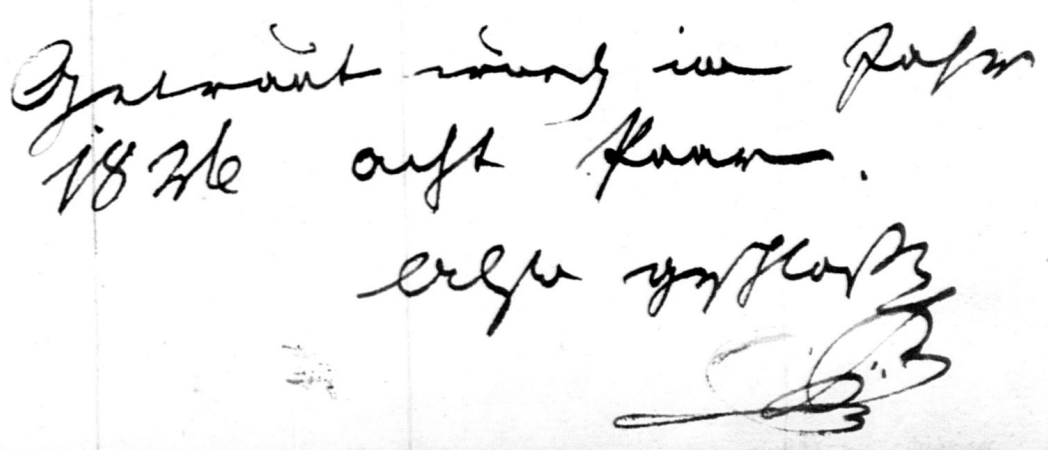 Getraut wurd im Jahr
1826 acht Paar.
also geschloßen